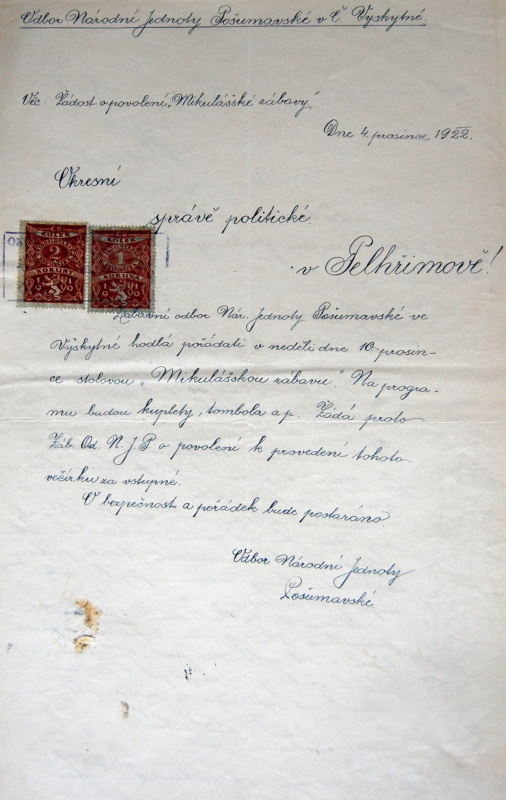 Odbor Národní Jednoty Pošumavské v Č. Vyskytné.
Věc: Žádost o povolení „Mikulášské zábavy"
Dne 4. prosince 1922.
Okresní
správě politické
v Pelhřimově!
KOLEK
2
KORUNY
1919
KOLEK
1
KORUNA
1919
Zábavní odbor Nár. Jednoty Pošumavské ve
Výskytné hodlá pořádati v neděli dne 10. prosin-
ce stolovou „Mikulášskou zábavu." Na progra-
mu budou kuplety, tombola a p. Žádá proto
Záb. Od. N. J. P. o povolení k provedení tohoto
večírku za vstupné.
O bezpečnost a pořádek bude postaráno.
Odbor Národní Jednoty
Pošumavské